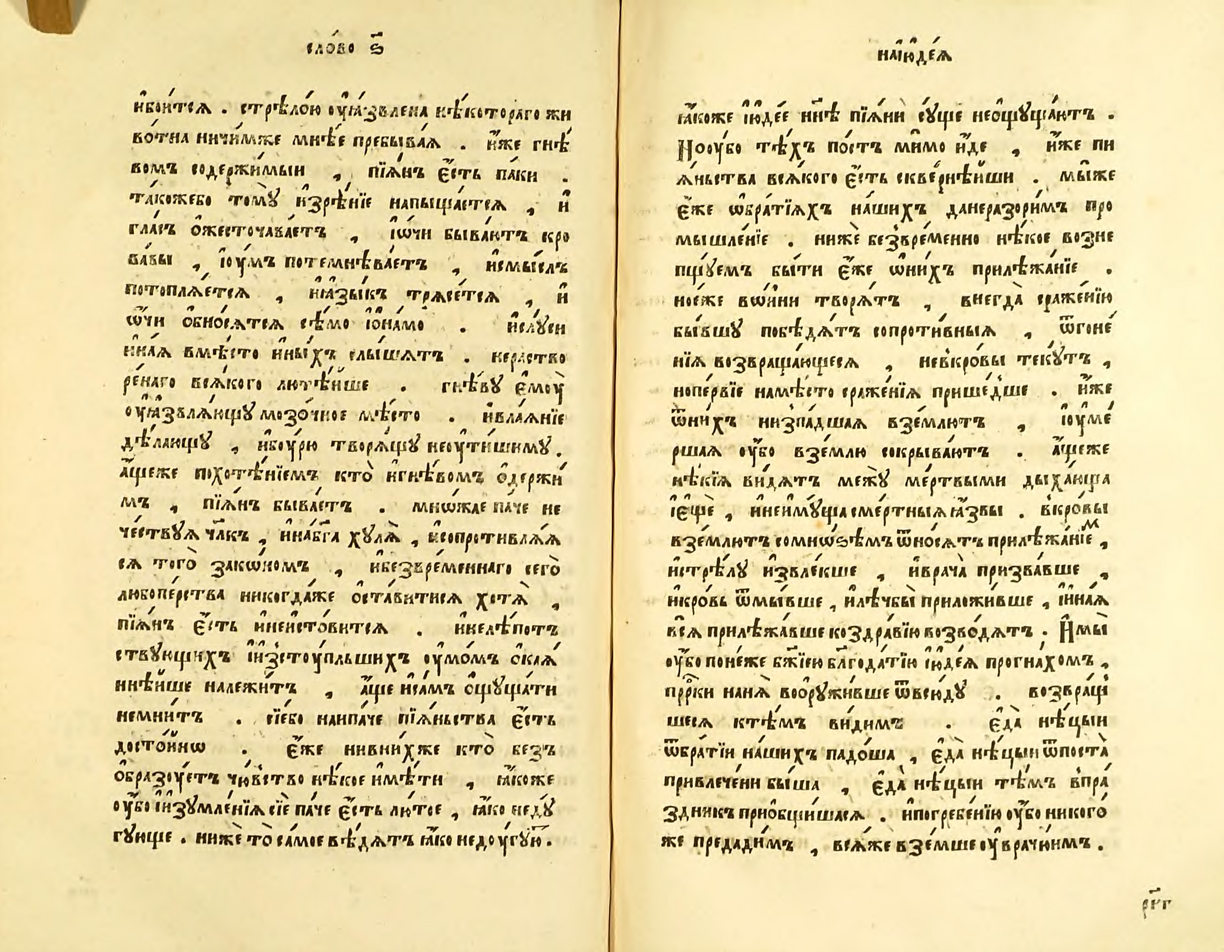 сло́во ѕ҃
и҆бои́тсѧ . стрѣло́ю оу҆ѧ҆́звлена нѣ́котораго жи
во́тна ничи́мже мнѣ́е пребыва́ѧ . и҆́же гнѣ́
вомъ содержи́мыи , пїѧ́нъ є҆́сть па́ки .
та́коже бо томꙋ̀ и҆зрѣ́нїе напыща́етсѧ , и҆
гла́съ ѡ҆жесточа́ваетъ , і҆ѻ҆́чи быва́ютъ кро
ва́вы , і҆оу҆́мъ потемнѣва́етъ , и҆смы́слъ
потоплѧ́етсѧ , и҆ꙗ҆зы́къ трѧсе́тсѧ , и҆
ѻ҆́чи ѻ҆бносѧ́тсѧ сѣ́мо і҆ѻ҆на́мо . и҆слꙋ́си
и҆на́ѧ вмѣ́сто и҆ны́хъ слы́шатъ . неразтво
ре́наго всѧ́кого лютѣ́йше . гнѣ́вꙋ є҆мꙋ̀
оу҆ѧзвлѧ́ющꙋ мозо́чное мѣ́сто . и҆влаѧ́нїе
дѣ́лающꙋ , и҆бꙋ́рю творѧ́щꙋ неоути́шимꙋ .
а҆́щеже похотѣ́нїемъ кто̀ и҆гнѣ́вомъ ѻ҆держи́
мъ , пїѧ́нъ быва́етъ . мно́жае па́че не
че́ствꙋѧ чл҃къ , и҆наб҃га хꙋ́лѧ , и҆сопротивлѧ́ѧ
сѧ того̀ зако́номъ , и҆безвре́меннаго сего̀
любопе́рства никогда́же ѻ҆ста́витисѧ хотѧ̀ ,
пїѧ́нъ є҆́сть и҆неи́стовитсѧ . и҆нелѣ́пот
ствꙋющихъ и҆и҆зстꙋ́пльшихъ оу҆мо́мъ ѻ҆каѧ́
ннѣйше належи́тъ , а҆́ще и҆са́мъ ѻ҆щꙋща́ти
немни́тъ . сїебо наипа́че пїѧ́ньства є҆́сть
досто́йнѡ . є҆́же нивни́хже кто̀ безъ
ѻ҆бразꙋ́етъ чю́вство нѣ́кое и҆мѣ́ти , ꙗ҆́коже
оу҆́бо и҆и҆зꙋмле́нїѧ сїѐ па́че є҆́сть лю́тое , ꙗ҆́ко недꙋ́
гꙋюще . нижѐ то̀ са́мое вѣ́дѧтъ ꙗ҆́ко недꙋ́гꙋютъ .
наїюде́ѧ
ꙗ҆́коже і҆юде́е нн҃ѣ пїѧ́ни сꙋ́ще неѻ҆щꙋща́ютъ .
Ноу҆́бо тѣ́хъ по́стъ ми́мо и҆́де , и҆́же пи
ѧ́ньства всѧ́кого є҆́сть скве́рнѣйши . мы́же
є҆́же ѡ҆бра́тїѧхъ на́шихъ данеразори́мъ про
мышле́нїе . нижѐ безвре́менно нѣ́кое возне
пщꙋ́емъ бы́ти є҆́же ѡ҆ни́хъ прилѣжа́нїе .
но́еже во́йни творѧ́тъ , внегда̀ сраже́нїю
бы́вшꙋ побѣдѧ́тъ сопроти́вныѧ , ѿгоне́
нїѧ возвраща́ющесѧ , невкро́вы текꙋ́тъ ,
нопе́рвїе намѣ́сто сраже́нїѧ прише́дше . и҆́же
ѿни́хъ низпа́дшаѧ взе́млютъ , і҆оу҆ме́
ршаѧ оу҆́бо взе́млю сокрыва́ютъ . а҆́щеже
нѣ́кїѧ ви́дѧтъ межꙋ̀ ме́ртвыми ды́хающа
і҆ещѐ , и҆неи҆мꙋ́ща сме́ртныѧ ꙗ҆́звы . вкро́вы
взе́млютъ сомно́ѕѣмъ ѿно́сѧтъ прилѣжа́нїемъ ,
и҆стрѣ́лꙋ и҆звле́кше , и҆врача̀ призва́вше ,
и҆кро́вь ѿмы́вше , и҆лѣ́чбы приложи́вше , і҆и҆на́ѧ
всѧ̀ прилѣжа́вше коздра́вїю возво́дѧтъ . И҆мы̀
оу҆́бо поне́же бж҃їею благода́тїю і҆юде́ѧ прогна́хомъ ,
прⷪ҇ро́ки нанѧ̀ воорꙋжи́вше ѿвсю́дꙋ . возвра́щ
шесѧ ктѣ́мъ ви́димъ . є҆да̀ нѣ́цыи
ѿбра́тїи на́шихъ падо́ша , є҆да̀ нѣ́цыи ѿпоста̀
привлече́ни бы́ша , є҆да̀ нѣ́цыи тѣ́мъ впра́
здникъ приѻбщи́шасѧ . и҆погребе́нїю оу҆́бо никого́
же предади́мъ , всѧ́же взе́мше оу҆врачю́имъ .
рк҃г